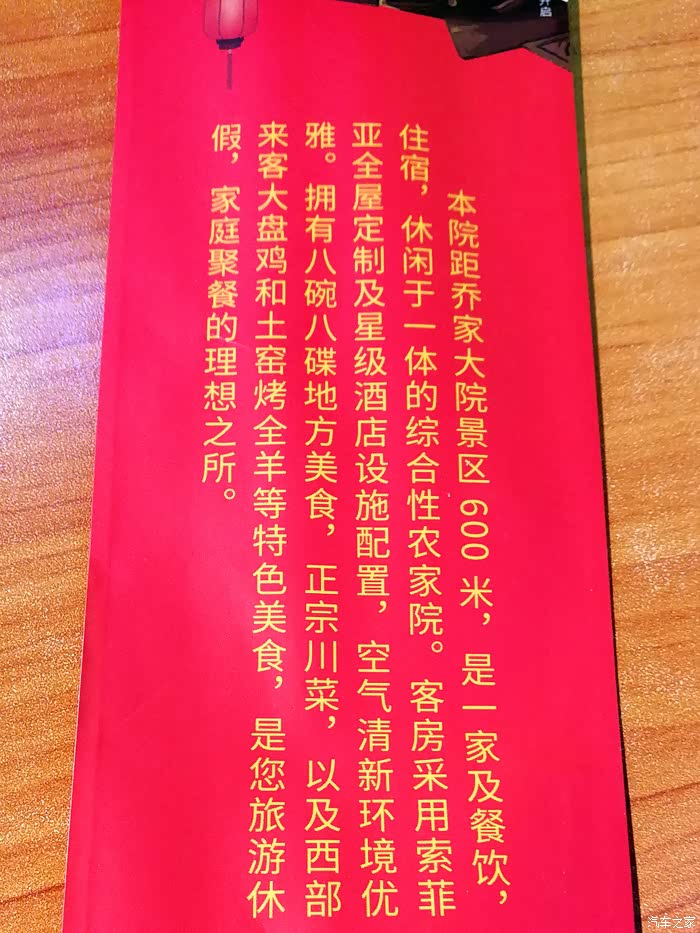 开启
本院距乔家大院景区600米，是一家及餐饮，
住宿，休闲于一体的综合性农家院。客房采用索菲
亚全屋定制及星级酒店设施配置，空气清新环境优
雅。拥有八碗八碟地方美食，正宗川菜，以及西部
来客大盘鸡和土窑烤全羊等特色美食，是您旅游休
假，家庭聚餐的理想之所。
汽车之家